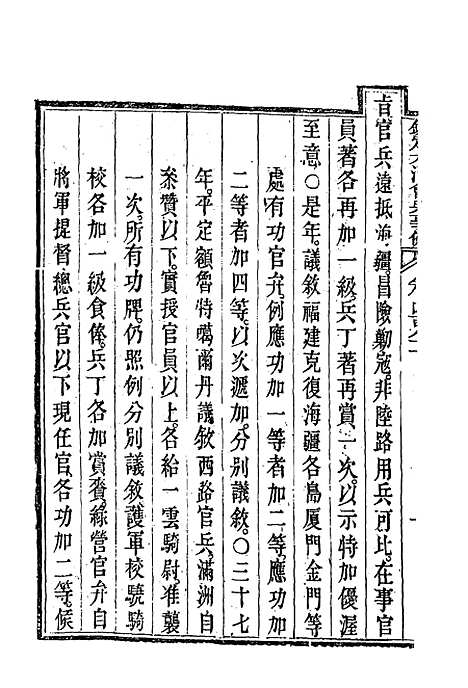 旨官兵遠抵海疆冒險勦寇非陸路用兵可比在事官
員著各再加一級兵丁著再賞一次以示特加優渥
至意○是年議敘福建克復海疆各島厦門金門等
處有功官弁例應功加一等者加二等應功加
二等者加四等以次遞加分別議敘○三十七
年平定額魯特噶爾丹議敘西路官兵滿洲自
叅贊以下實授官員以上各給一雲騎尉准襲
一次所有功牌仍照例分別議敘護軍校驍騎
校各加一級食俸兵丁各加賞賚綠營官弁自
將軍提督總兵官以下現任官各功加二等候